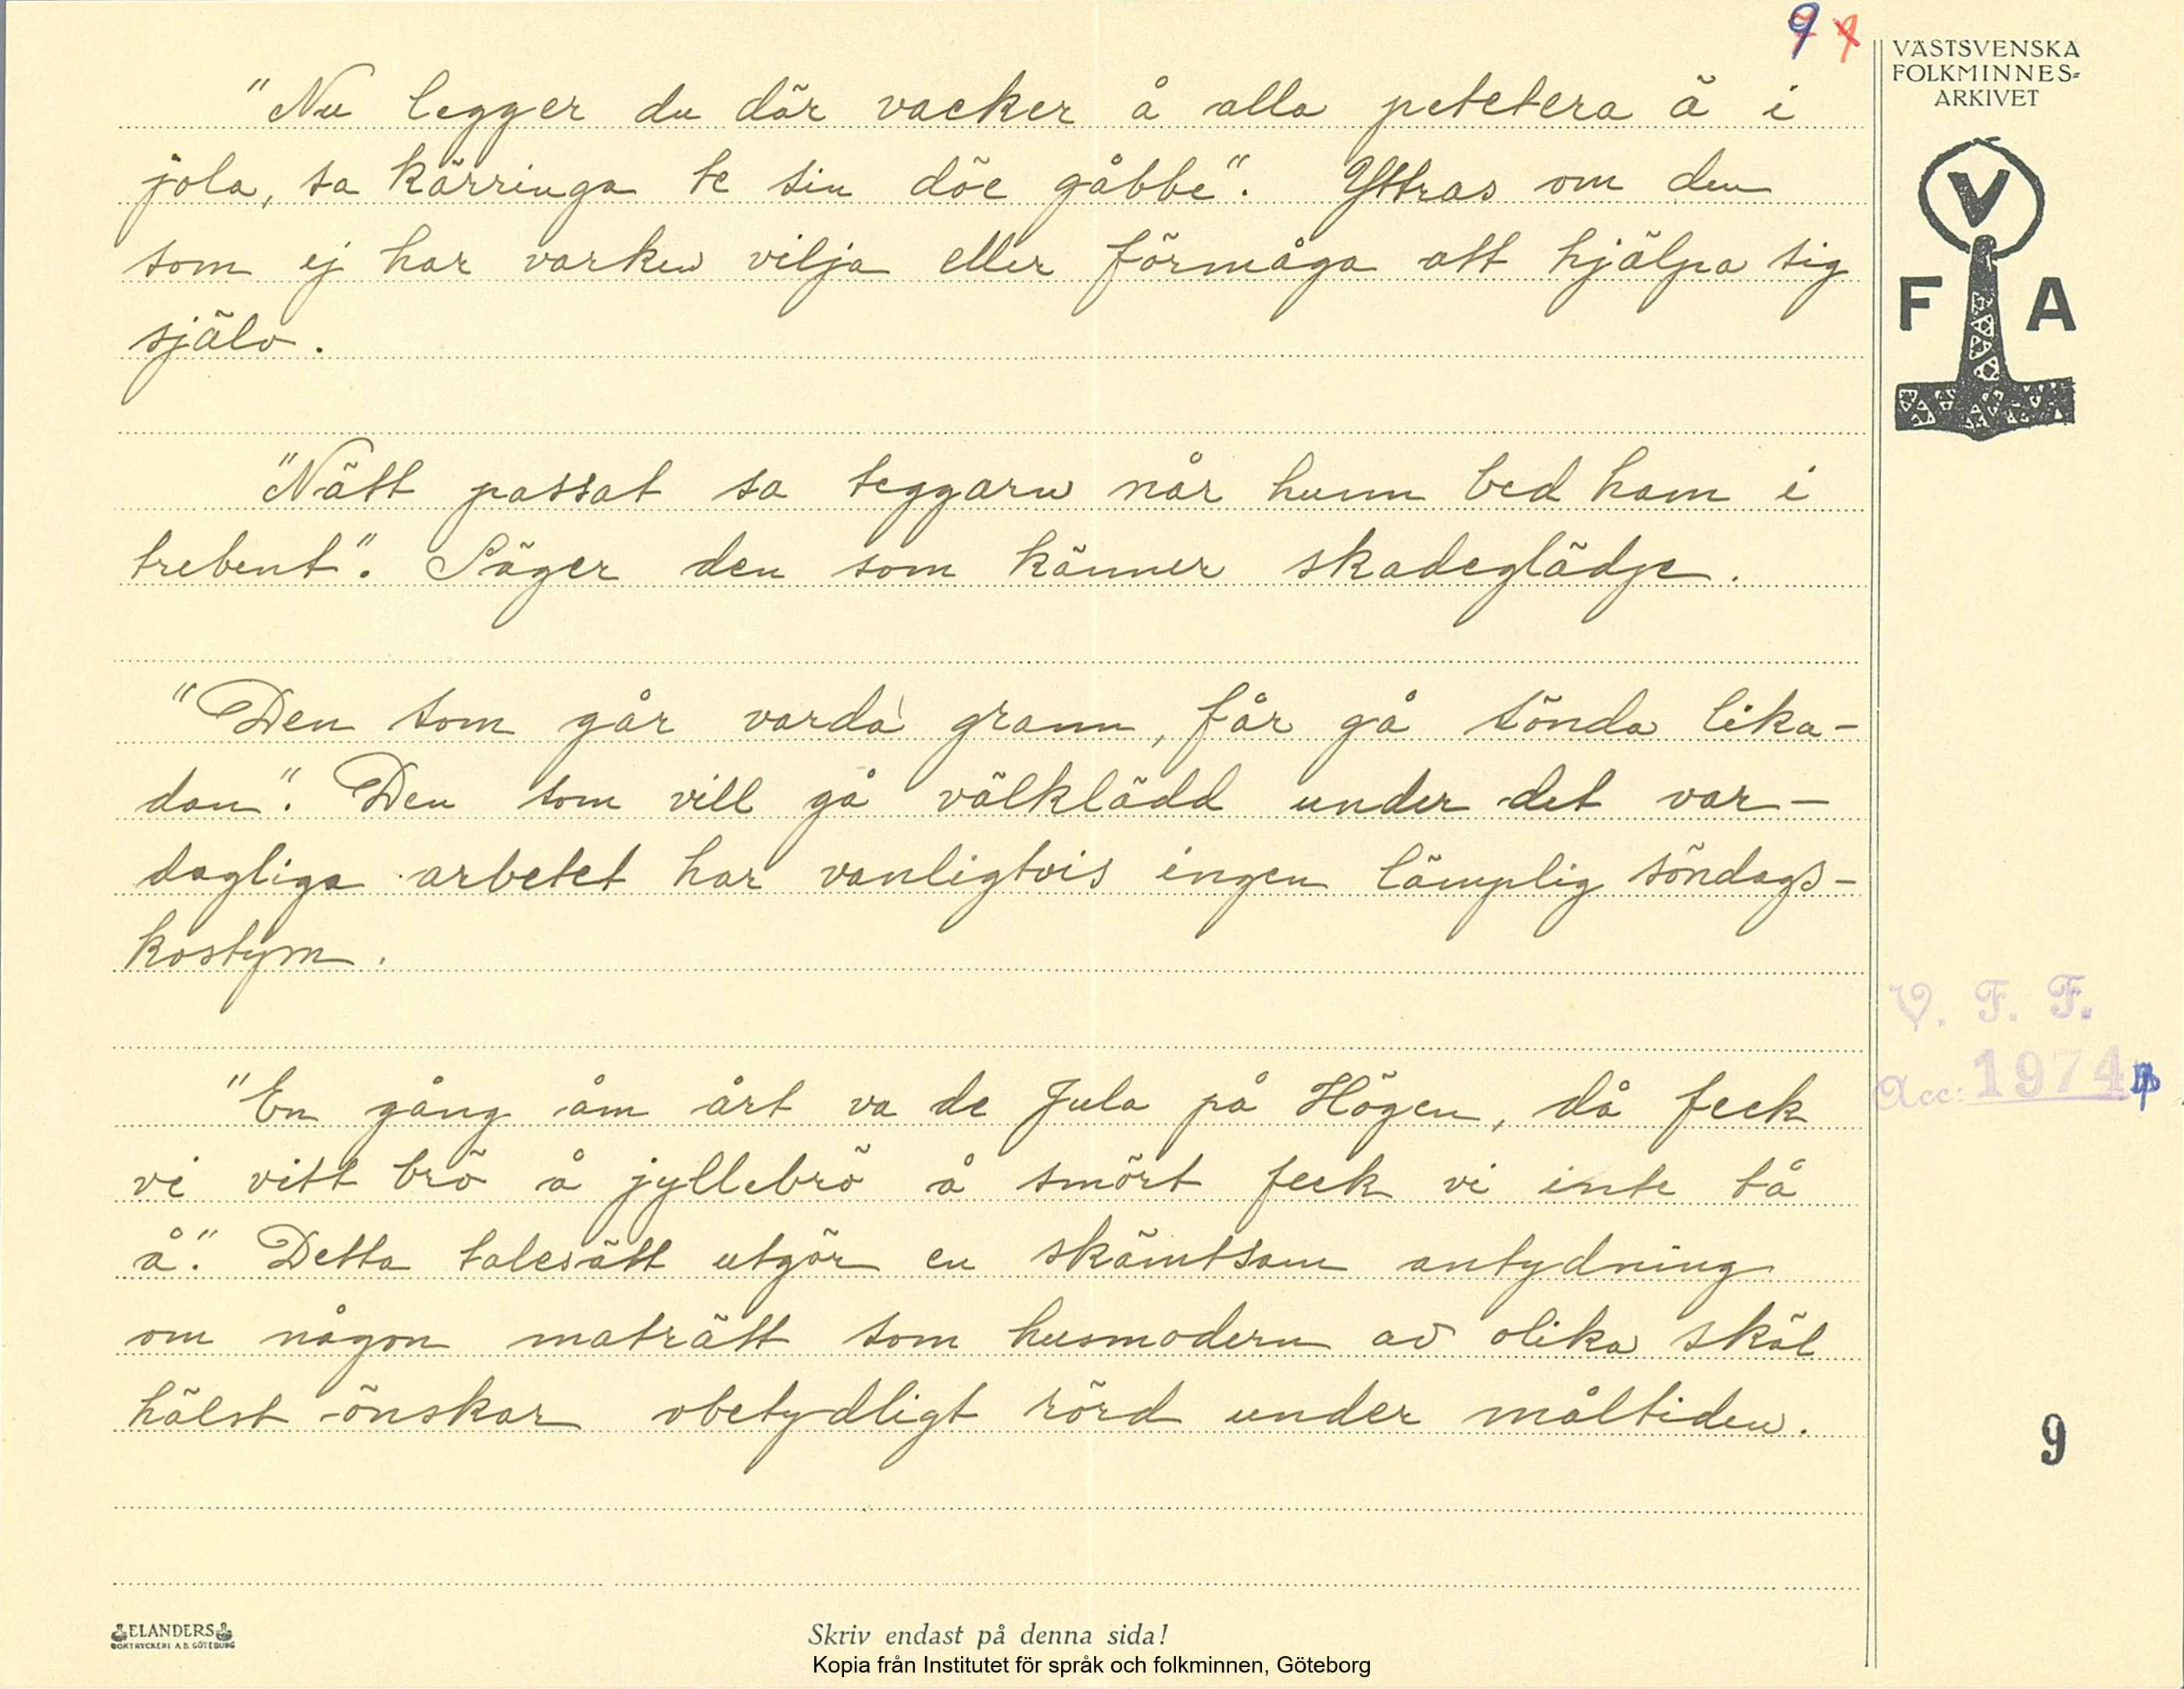 9
VÄSTSVENSKA
FOLKMINNES-
ARKIVET
V
F A
"Nu legger du där vacker å alla petetera ä i
jola, sa kärringa te sin döe gåbbe". Yttras om den
som ej har varken vilja eller förmåga att hjälpa sig
själv.
"Nätt passat sa teggarn når hunn bed ham i
trebent". Säger den som känner skadeglädje.
"Den som går varda grann, får gå sönda lika-
dan". Den som vill gå välklädd under det var-
dagliga arbetet har vanligtvis ingen lämplig söndags-
kostym.
"En gång åm årt va de Jula på Högen, då feck
vi vitt brö å jyllebrö å smört feck vi inte tå
å". Detta talesätt utgör en skämtsam antydning
om någon maträtt som husmodern av olika skäl
hälst önskar obetydligt rörd under måltiden.
V. F. F.
Acc: 1974
9
ELANDERS
BOKTRYCKERI A.B. GÖTEBORG
Skriv endast på denna sida!
Kopia från Institutet för språk och folkminnen, Göteborg